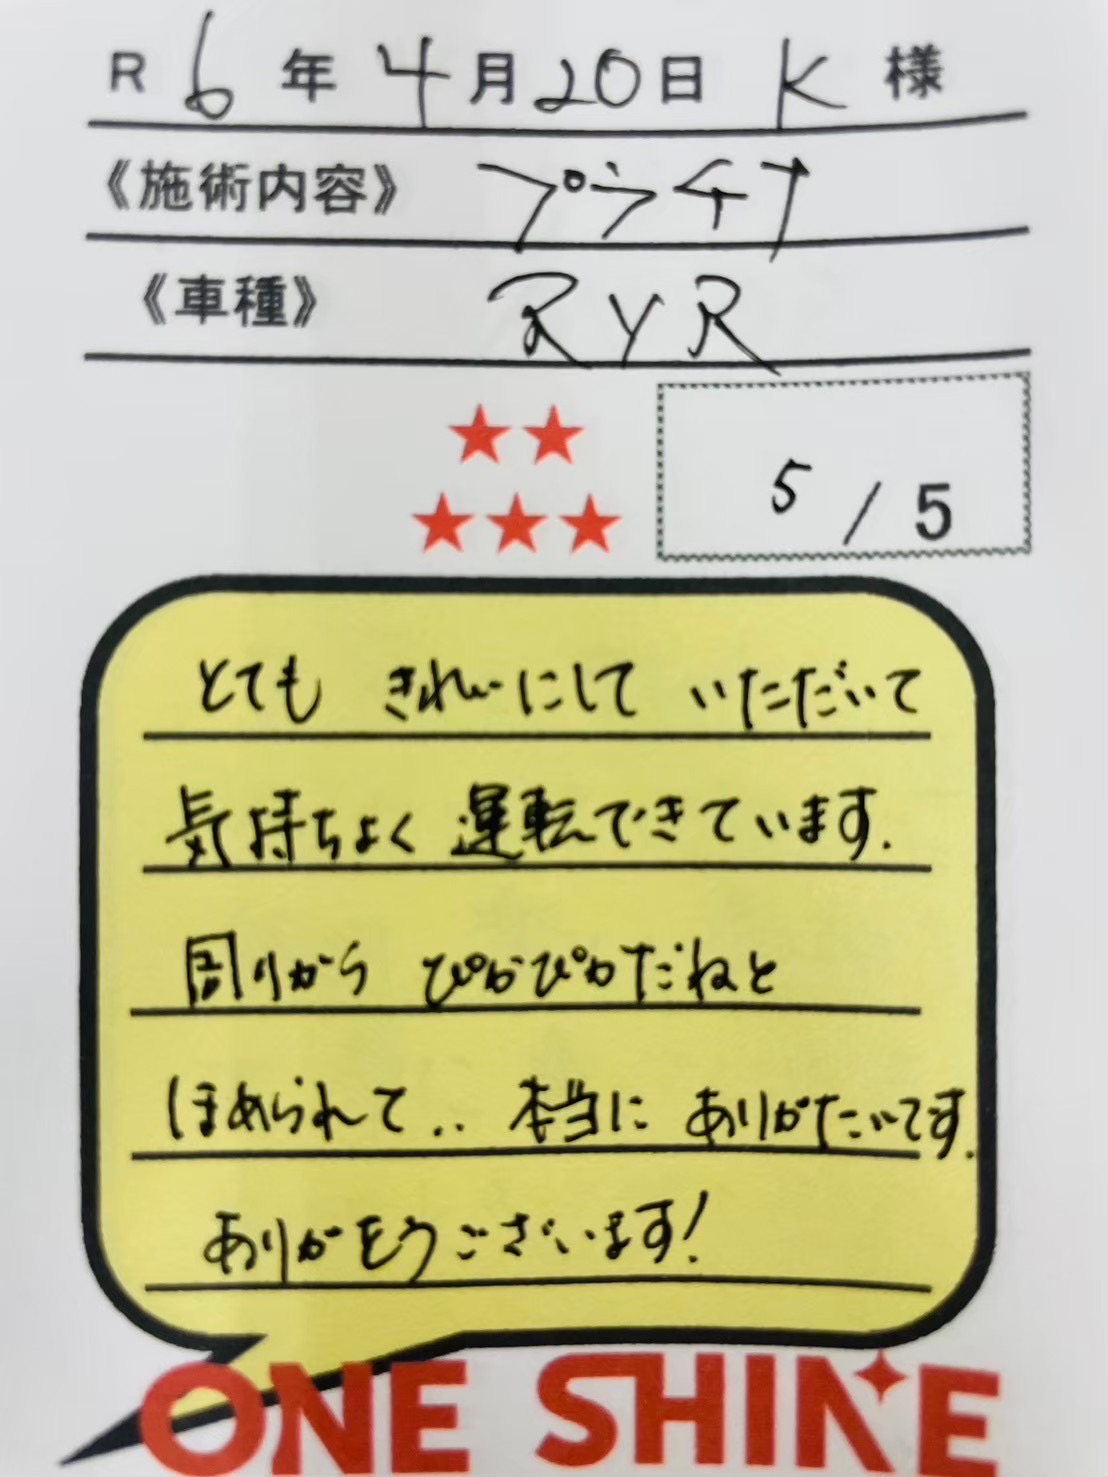 R 6 年 4 月 20 日 K 様
《施術内容》 プラチナ
《車種》 RYR
★★
★★★
5 / 5
とても きれいにして いただいて
気持ちよく 運転できています.
周りから ぴかぴかだねと
ほめられて.. 本当に ありがたいです.
ありがとうございます!
ONE SHINE